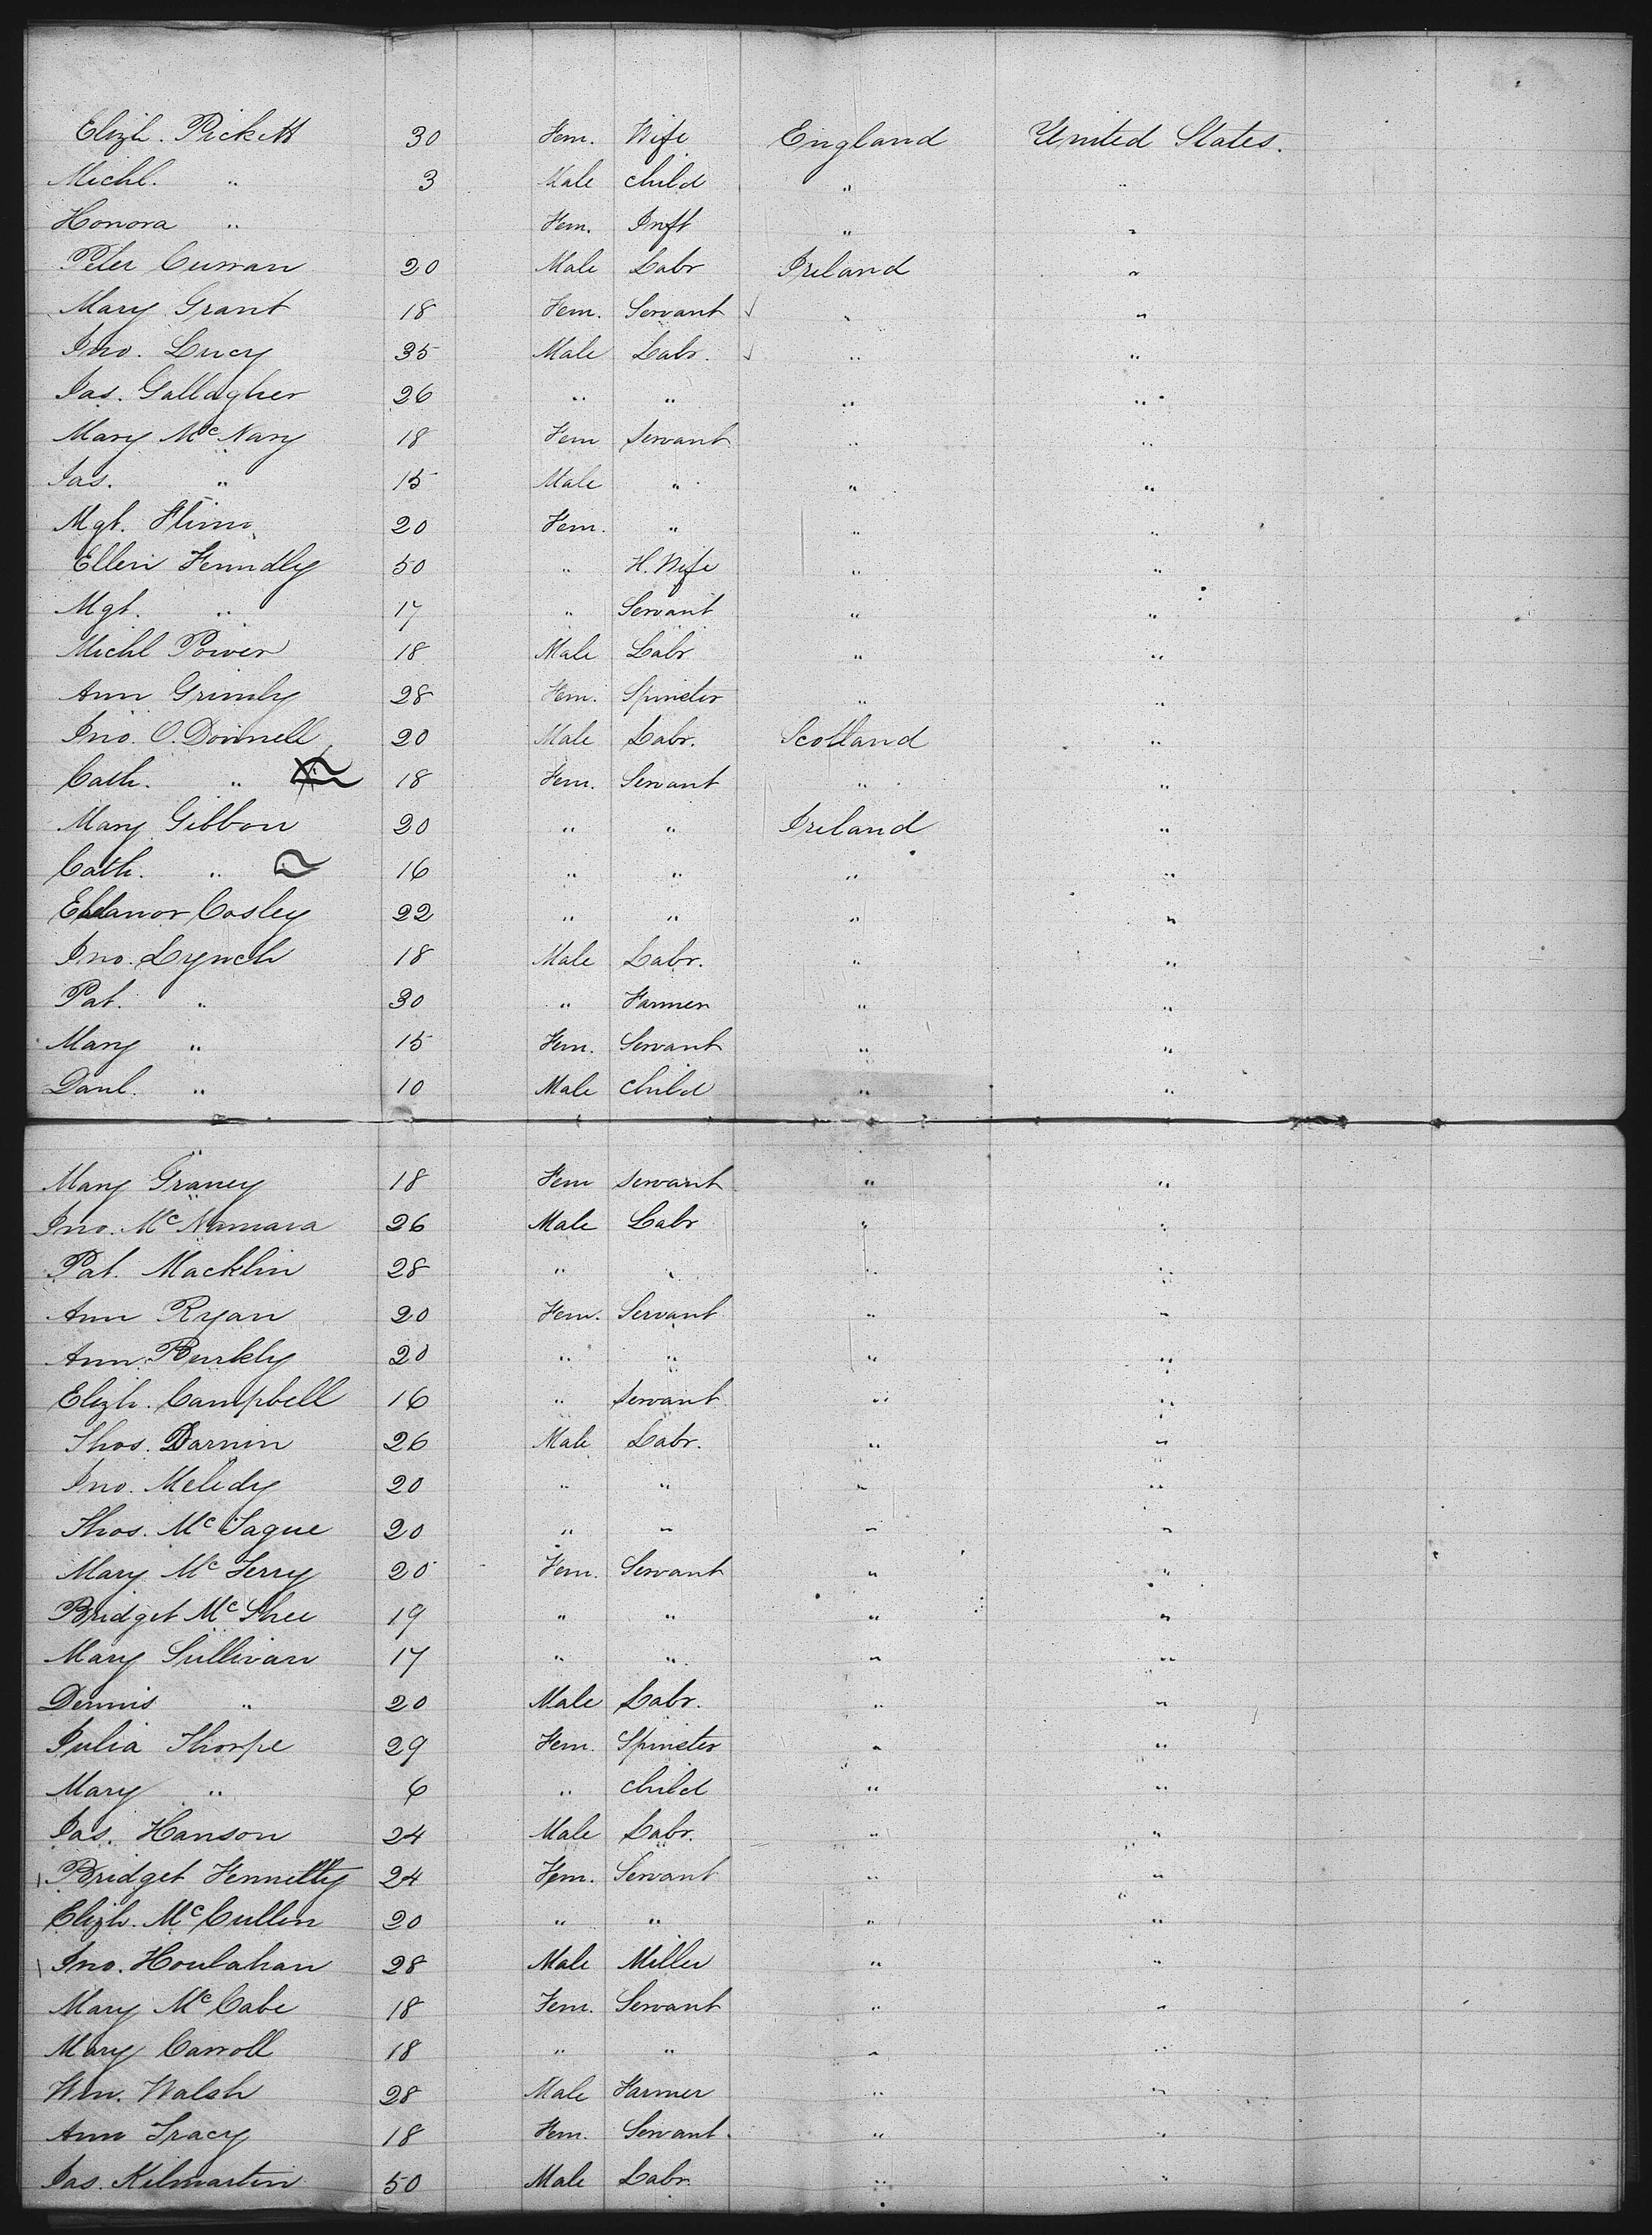 Elizh. Pickett 30 Fem. Wife England United States.
Michl. " 3 Male child " "
Honora " Fem. Inft " "
Peter Curran 20 Male Labr Ireland "
Mary Grant 18 Fem. Servant " "
Jno. Lucy 35 Male Labr. " "
Jas. Gallagher 26 " " " "
Mary McNary 18 Fem Servant " "
Jas. " 15 Male " " "
Mgt. 20 Fem. " " "
Ellen 50 " H. Wife " "
Mgt. " 17 " Servant " "
Michl Power 18 Male Labr " "
Ann Grimly 28 Fem. Spinster " "
Jno. O.Donnell 20 Male Labr. Scotland "
Cath. " 18 Fem. Servant " "
Mary Gibbon 20 " " Ireland "
Cath. " 16 " " " "
Eleanor Cosley 22 " " " "
Jno. Lynch 18 Male Labr. " "
Pat. " 30 " Farmer " "
Mary " 15 Fem. Servant " "
Danl. " 10 Male child " "
Mary Graney 18 Fem Servant " "
Jno. McNamara 26 Male Labr " "
Pat. Macklin 28 " " " "
Ann Ryan 20 Fem. Servant " "
Ann Burkly 20 " " " "
Elizh. Campbell 16 " Servant " "
Thos. Darnin 26 Male Labr. " "
Jno. Meledy 20 " " " "
Thos. McTague 20 " " " "
Mary McTerry 20 Fem. Servant " "
Bridget McShee 19 " " " "
Mary Sullivan 17 " " " "
Dennis " 20 Male Labr. " "
Julia Thorpe 29 Fem. Spinster " "
Mary " 6 " child " "
Jas. Hanson 24 Male Labr. " "
Bridget Fennelly 24 Fem. Servant " "
Elizh. McCullin 20 " " " "
Jno. Houlahan 28 Male Miller " "
Mary McCabe 18 Fem. Servant " "
Mary Carroll 18 " " " "
Wm. Walsh 28 Male Farmer " "
Ann Tracy 18 Fem. Servant " "
Jas. Kilmartin 50 Male Labr. " "